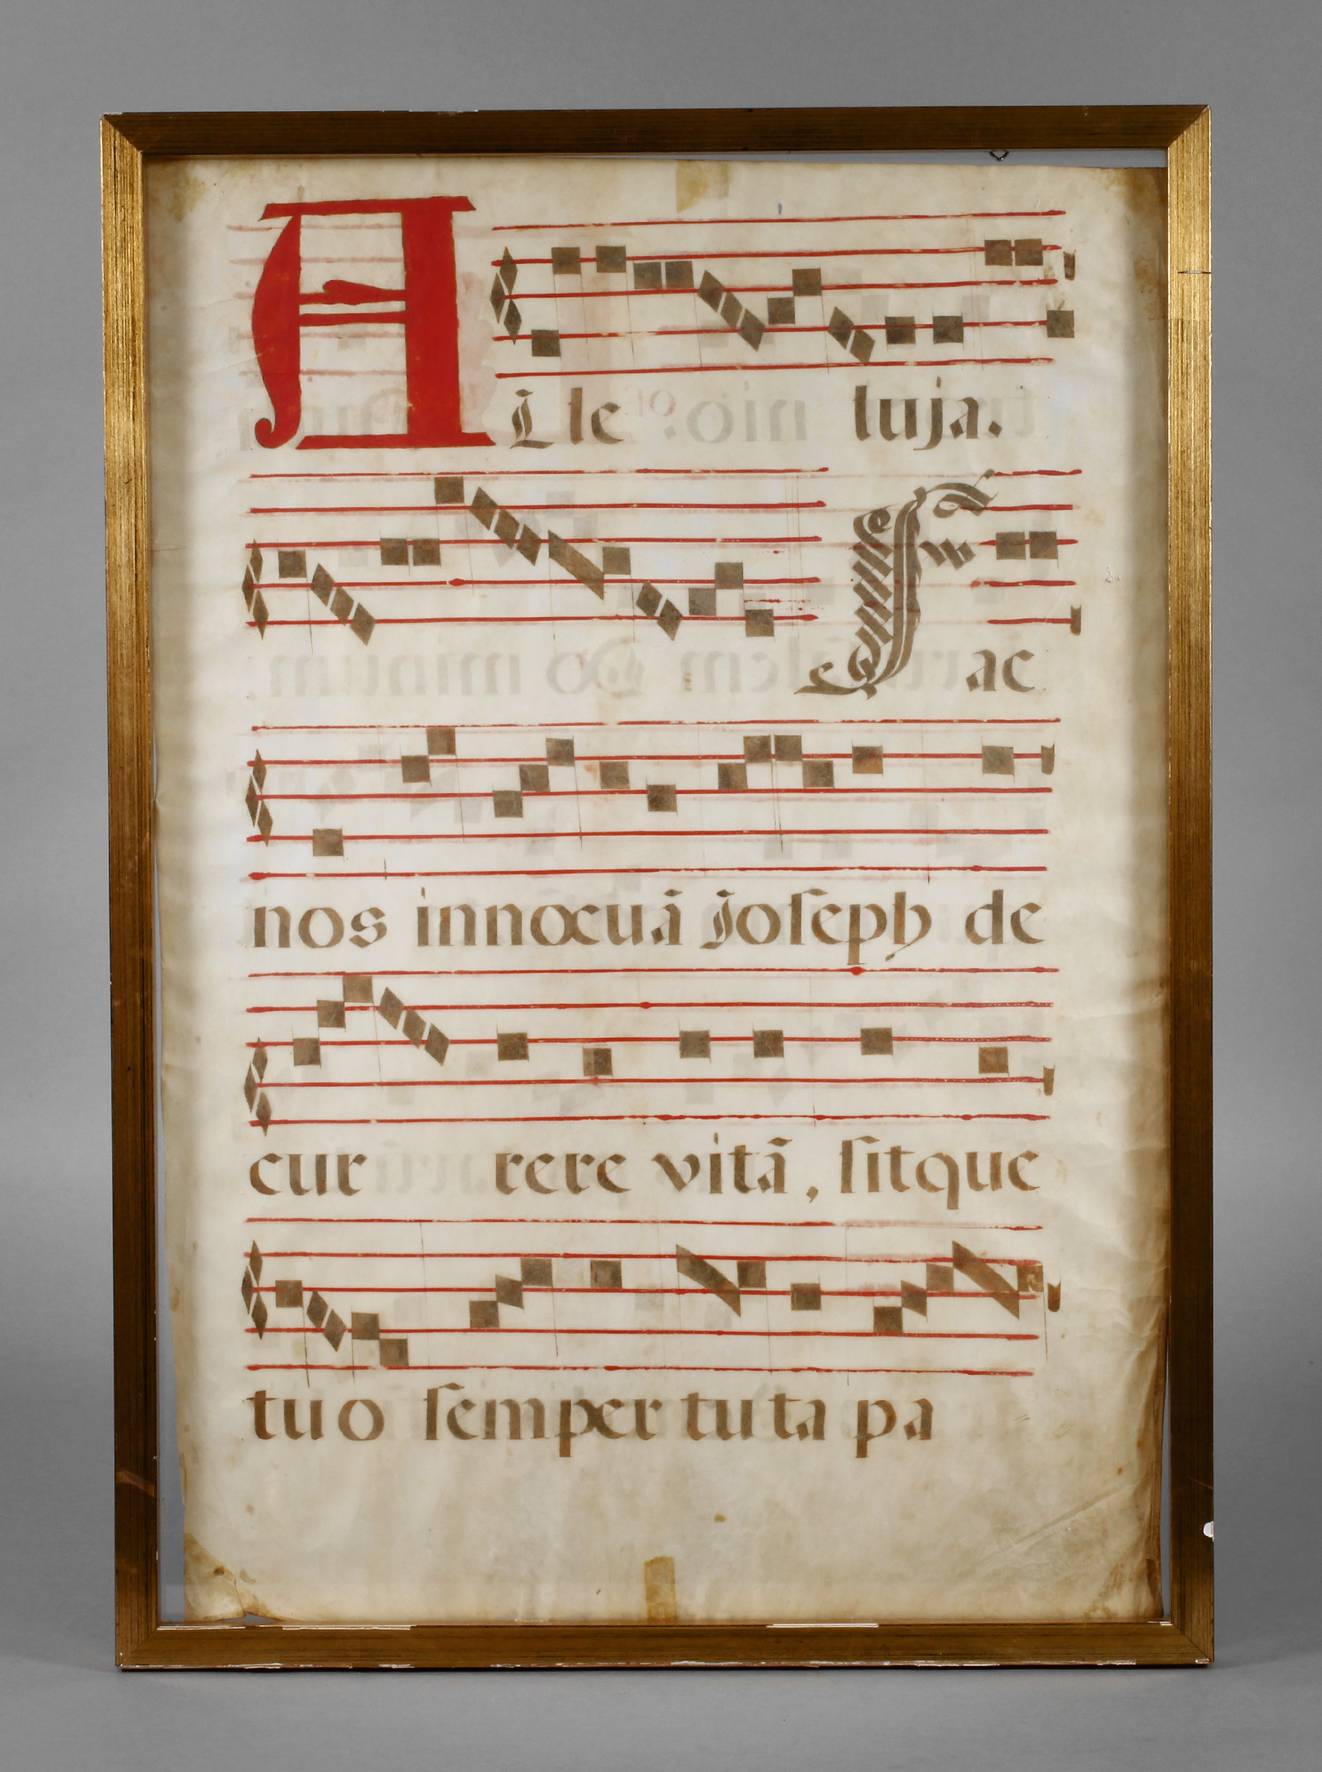 ALle luja.
Fac
nos innocuã Joſeph de
cur rere vitã, ſitque
tuo ſemper tuta pa